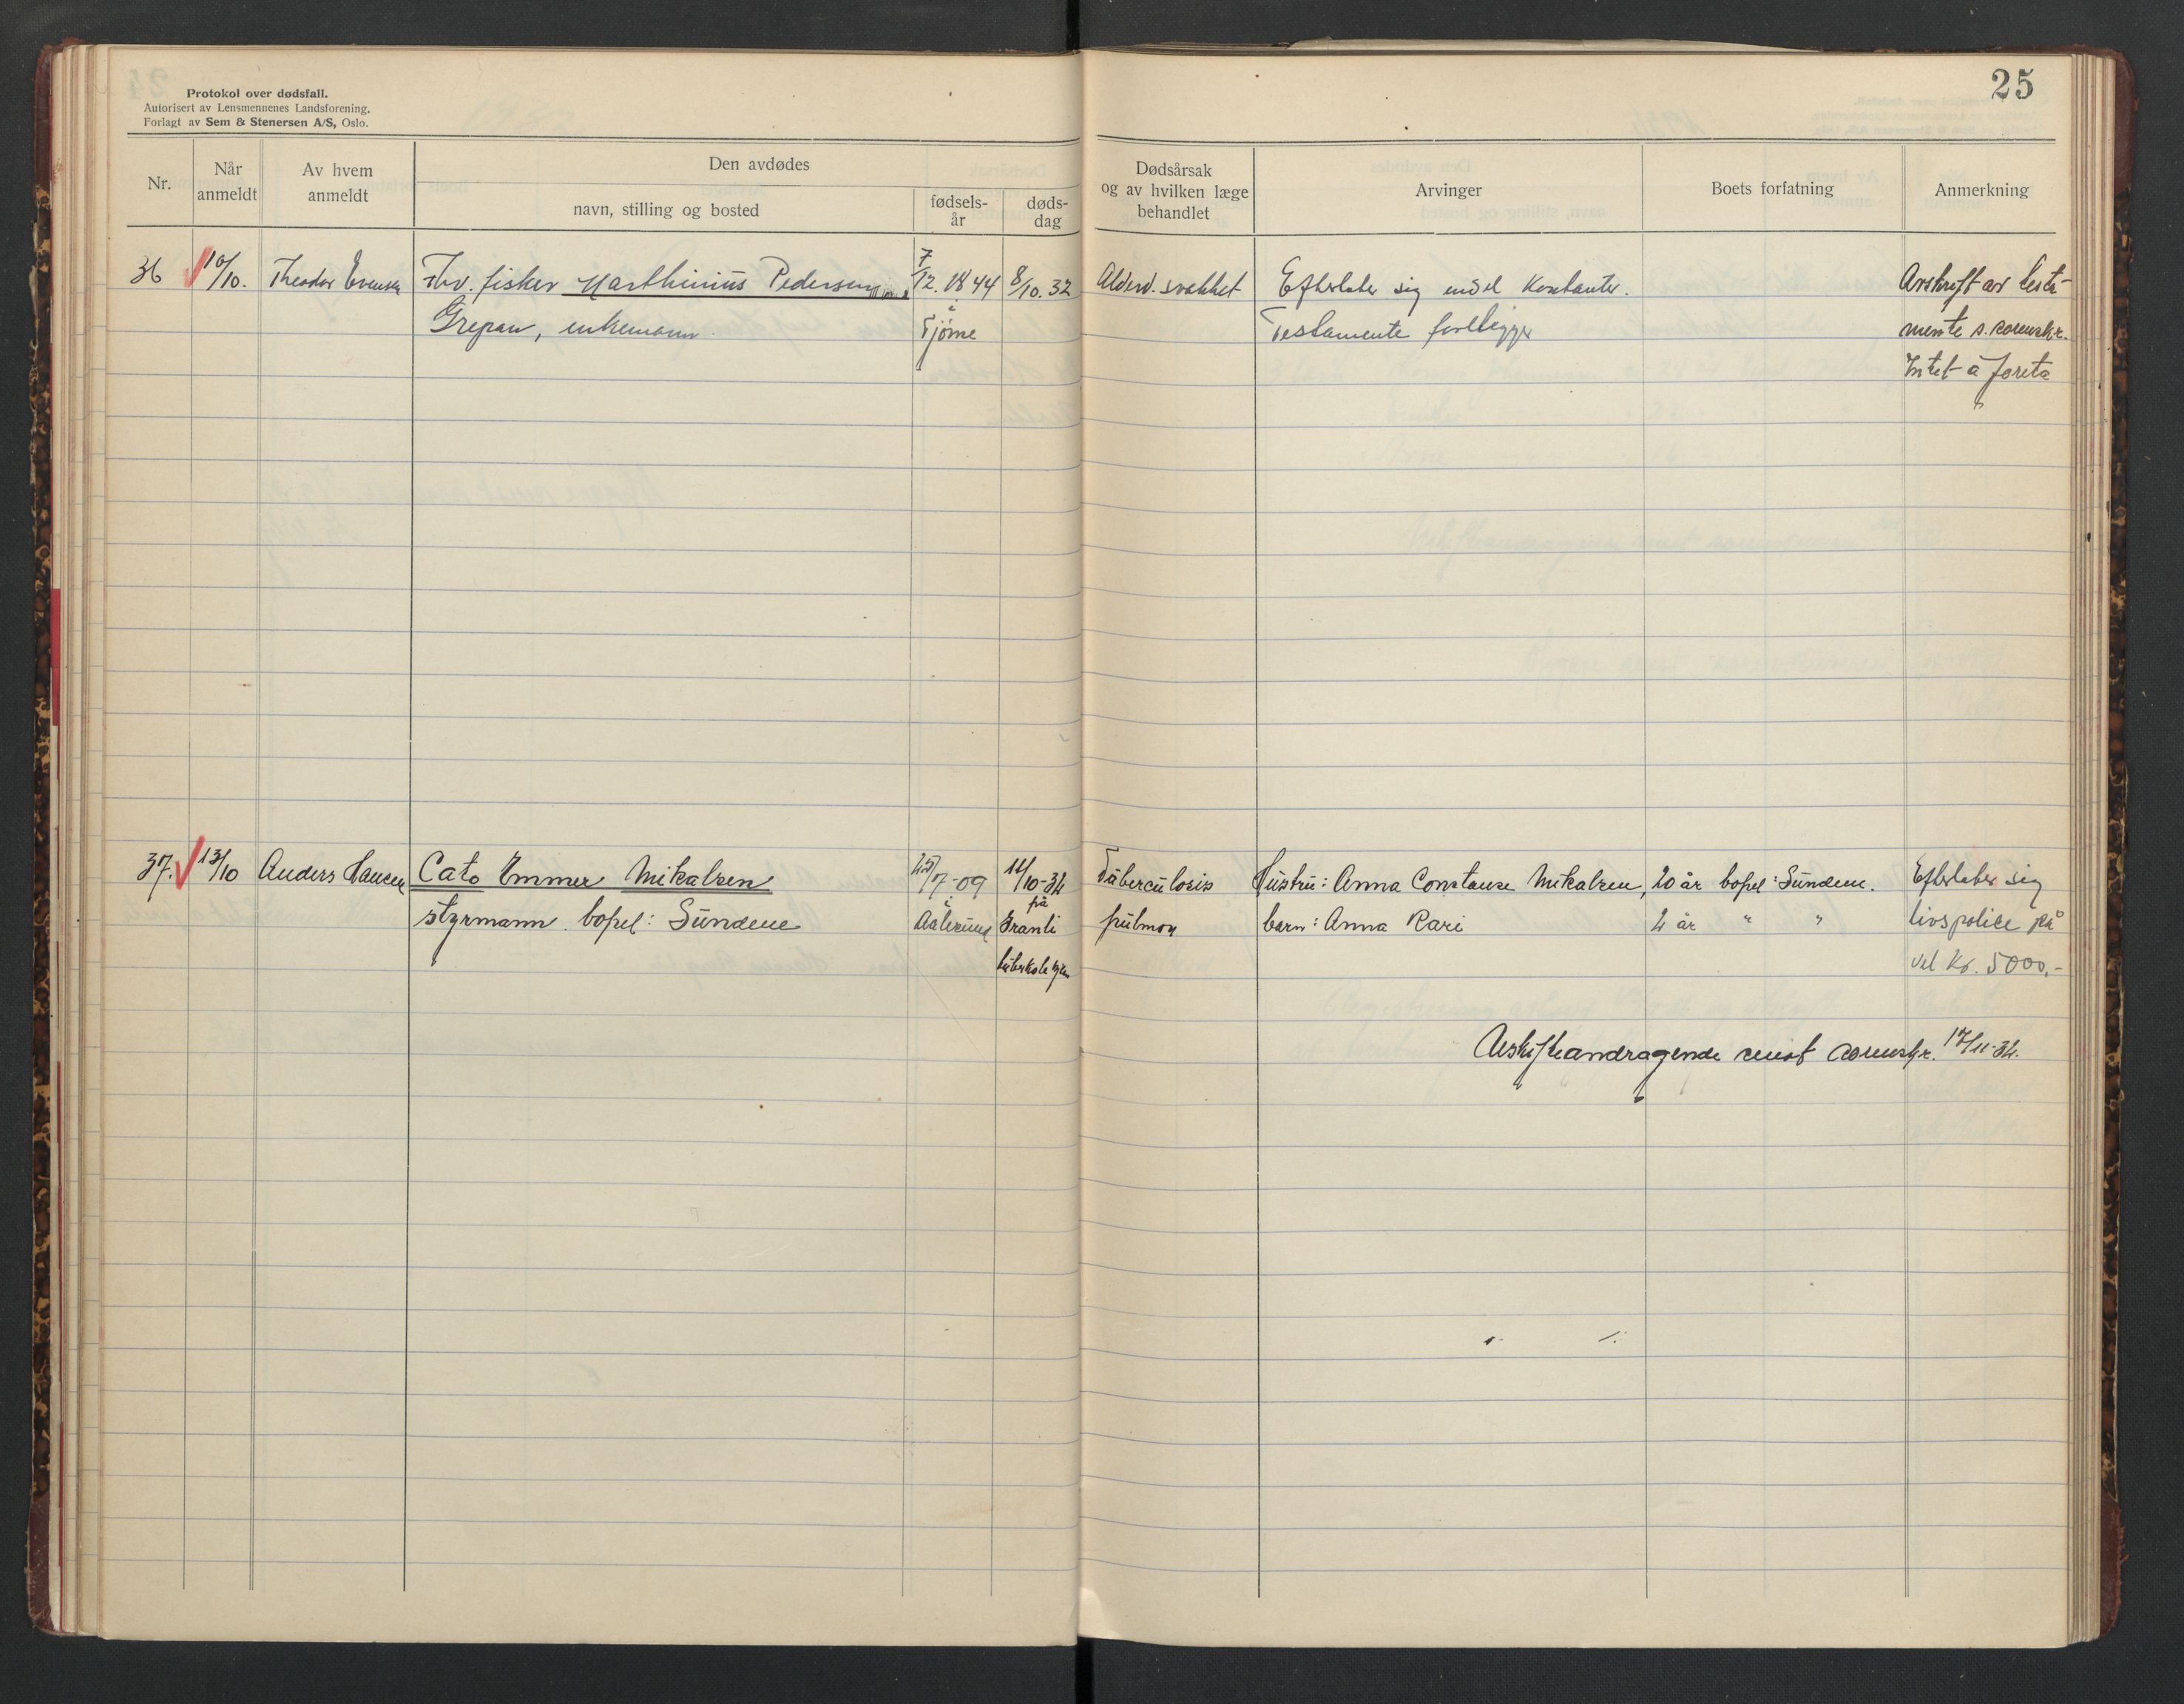 25
Protokol over dødsfall.
Autorisert av Lensmennenes Landsforening.
Forlagt av Sem & Stenersen A/S, Oslo.
Nr.
Når anmeldt
Av hvem anmeldt
Den avdødes
navn, stilling og bosted
fødsels-år
døds-dag
Dødsårsak og av hvilken læge behandlet
Arvinger
Boets forfatning
Anmerkning
36 10/10. Theodor Evensen Fhv. fisker Marthinius Pedersen 7/12. 1844 8/10. 32 Alderd. svakhet Efterlater sig endel kontanter. Avskrift av testa-
Grepan, enkemann. i Tjøme Testamente foreligger mente s. sorenskr.
Intet å foreta
37. 13/10 Anders Hansen Cato Emmer Mikalsen 25/7-09 11/10-34 Tüberculosis Hüstrü: Anna Constanse Mikalsen, 20 år bopel: Sündene. Efterlater sig
styrmann. bopel: Sündene i Aalesund på Granli pülmon barn: Anna Kari 2 år " " livspolice på
tüberkelehjem vel Kr. 5000,-
Uskifteandragende sendt sorenskr. 17/11-34.